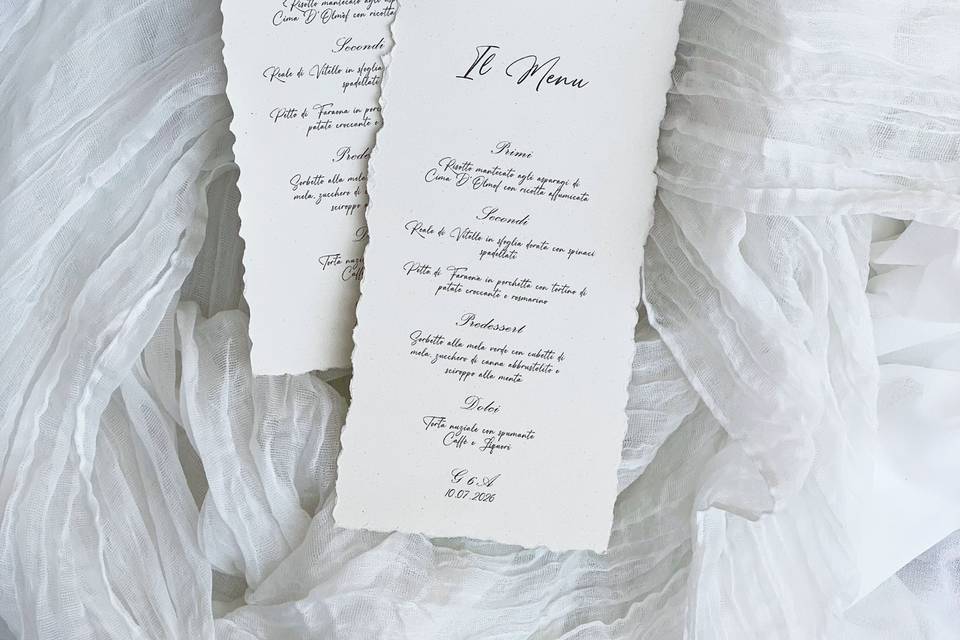 Risotto mantecato agli aspa
Cima D'Olmof con ricotta
Secondi
Reale di Vitello in sfoglia
spadellati
Petto di Faraona in porc
patate croccante e
Prede
Sorbetto alla mela
mela, zucchero di
sciroppo
D
Torta nuzia
Caff
Il Menu
Primi
Risotto mantecato agli asparagi di
Cima D'Olmof con ricotta affumicata
Secondi
Reale di Vitello in sfoglia dorata con spinaci
spadellati
Petto di Faraona in porchetta con tortino di
patate croccante e rosmarino
Predessert
Sorbetto alla mela verde con cubetti di
mela, zucchero di canna abbrustolito e
sciroppo alla menta
Dolci
Torta nuziale con spumante
Caffè e Liquori
G & A
10.07.2026